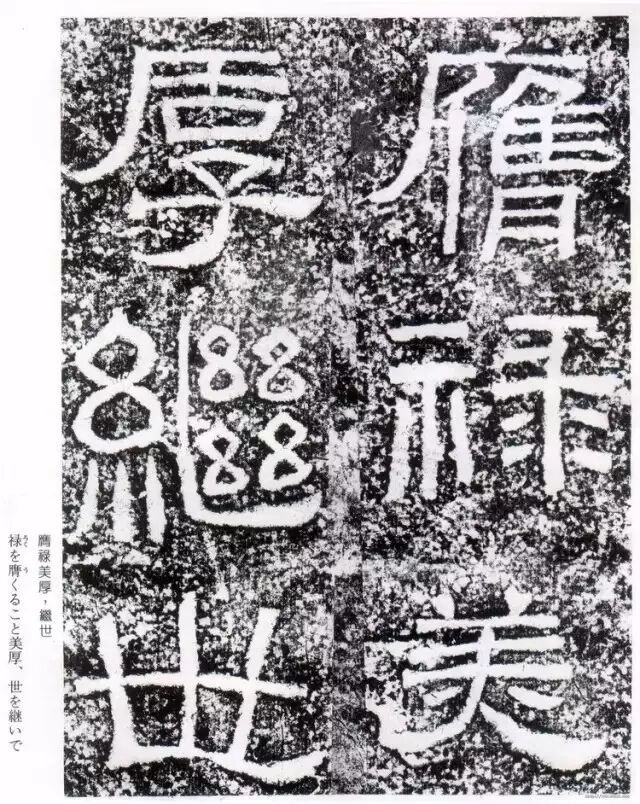 膺祿美
厚繼世
膺祿美厚，繼世
禄を膺くること美厚、世を継いで
ろく
う